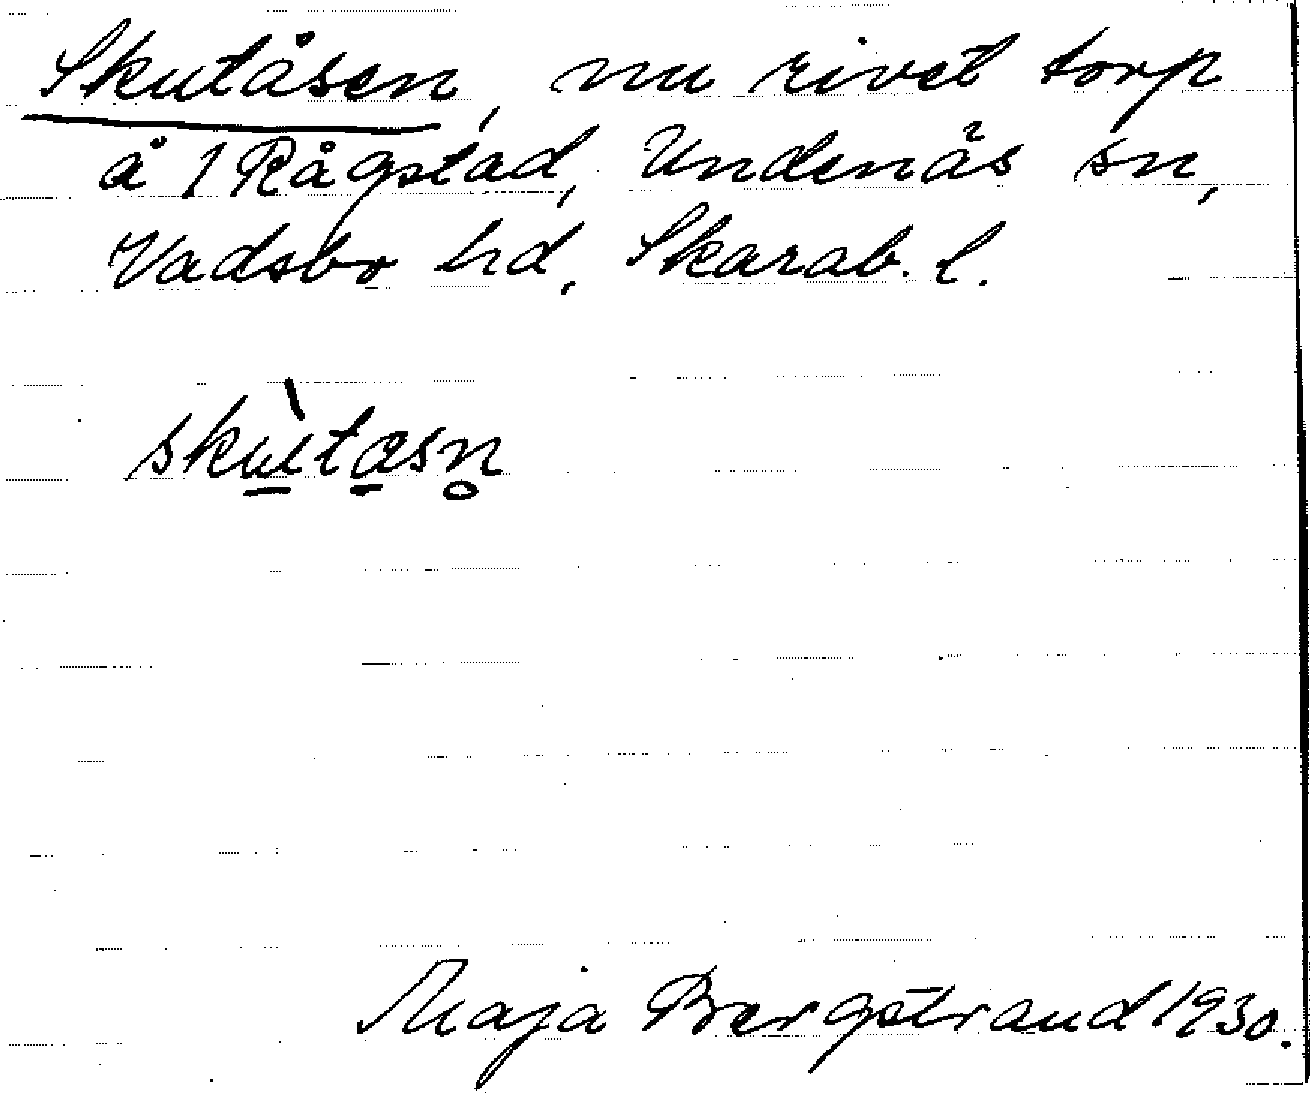 Skutåsen, nu rivet torp
å 1 Rågstad, Undenäs sn,
Vadsbo hd, Skarab. l.
skùtasn̥
Maja Bergstrand 1930.